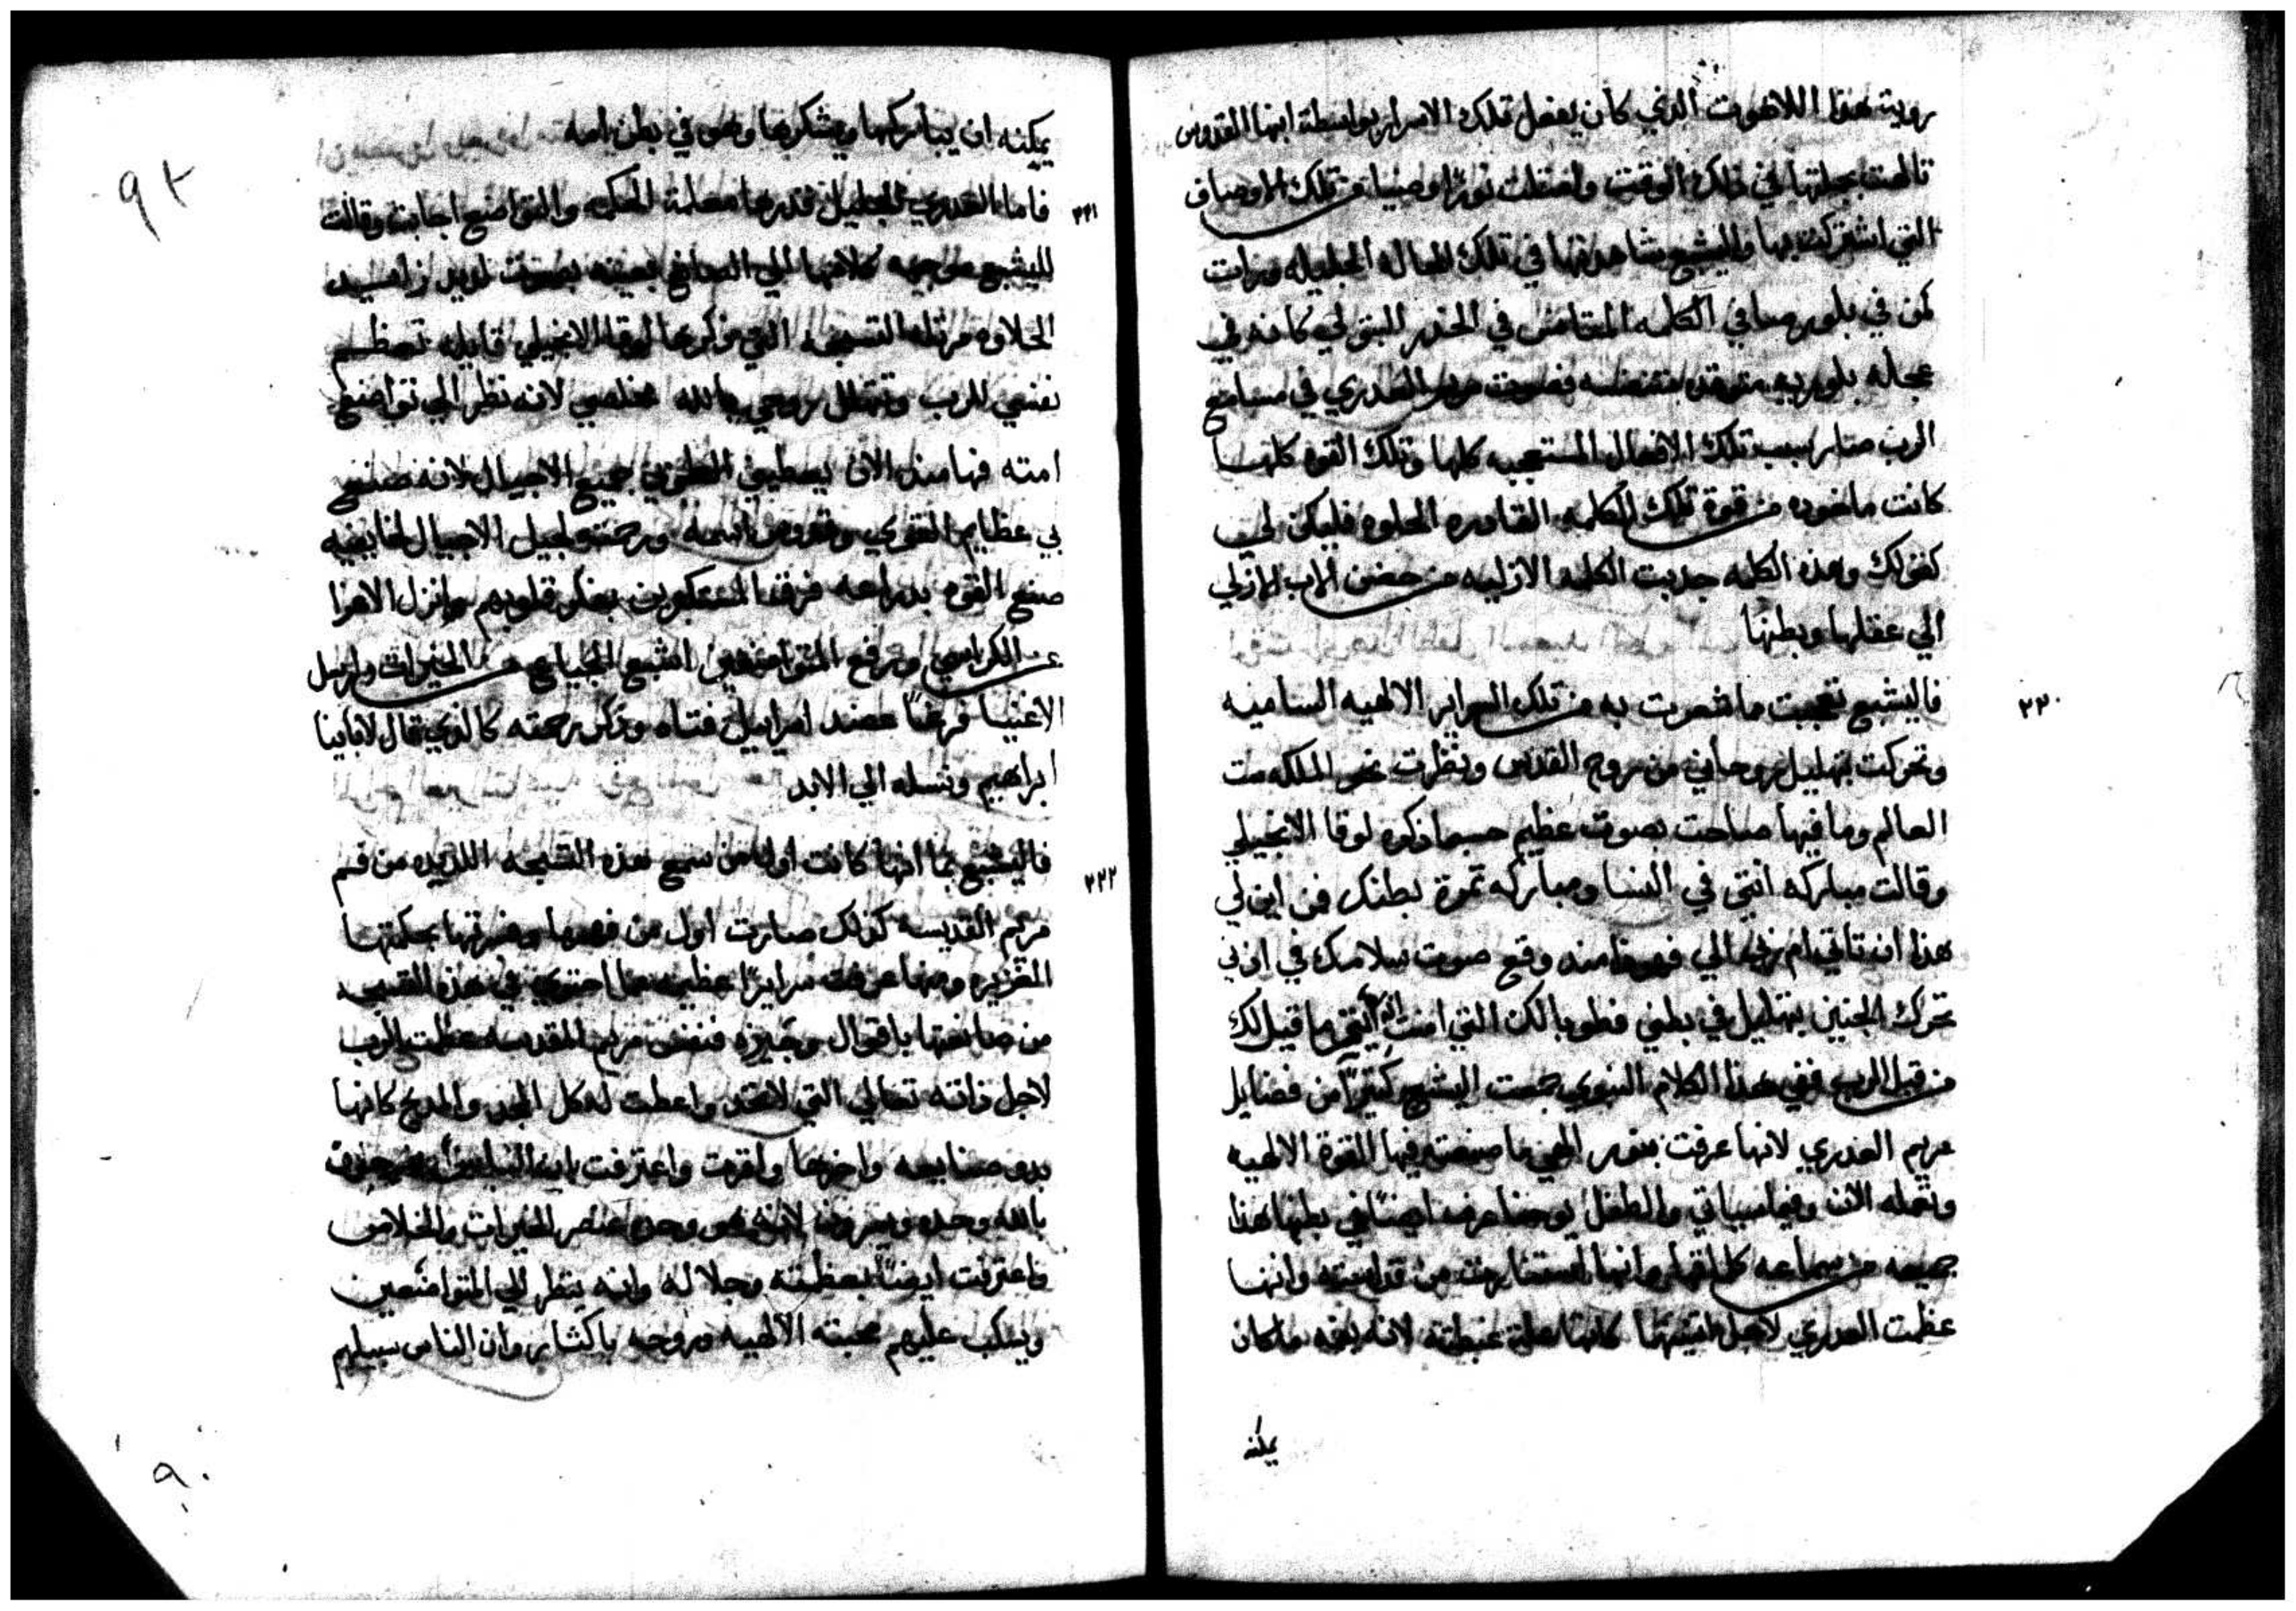 روية هذا اللاهوت الذي كان يفعل تلك الاسرار بواسطة ابنها القدوس
تالهت بجملتها في ذلك الوقت وامتلت نورًا وضيا من تلك الاوصاف
التي اشتركت بها واليشبع شاهدتها في تلك الحاله الجليله ورات
كمن في بلور صافي الكلمه المتانس في الخدر البتولي كانه في
عجله بلوريه
الرب صار سبب تلك الافعال المستعجبه كلها وتلك القوه كلها
كانت ماخوذه من قوة تلك الكلمه القادره الحلوه فليكن لي
كقولك وهذه الكلمه جذبت الكلمه الازليه من حضن الاب الازلي
الي عقلها وبطنها
٢٢٠ فاليشبع تعجبت ما شعرت به من تلك السراير الالهيه الساميه
وتحركت بتهليل روحاني من روح القدس ونظرت نحو الملكه ست
العالم وما فيها صاحت بصوت عظيم حسبما ذكره لوقا الانجيلي
وقالت مباركه انتي في النسا ومباركه ثمرة بطنك فمن اين لي
هذا ان تاتي ام ربي الي فهوذا منذ وقع صوت سلامك في اذني
تحرك الجنين بتهليل في بطني فطوبا لك التي امنت انه يتم ما قيل لك
من قبل الرب ففي هذا الكلام النبوي جمعت اليشبع كثيرًا من فضايل
مريم العدري لانها عرفت بنور الهي ما صنعته فيها القوة الالهيه
وتعمله الان وفيما سياتي والطفل يوحنا عرفه ايضًا في بطنها هذا
جميعه من سماعه كلماتها وانها استنارت من قداسته وانها
عظمت العدري لاجل كانها علة غبطته لانه بفمه ما كان
يمكنه
يمكنه ان يباركها ويشكرها وهو في بطن امه
٢٢١ فاما العدري الجليل قدرها معلمة الحكمه والتواضع اجابت وقالت
لليشبع موجهه كلامها الي الصانع بعينه بصوت لديد زايد
الحلاوه مرتله التسبحه التي ذكرها لوقا الانجيلي قايله تعظم
نفسي للرب وتتهلل روحي بالله مخلصي لانه نظر الي تواضع
امته فها منذ الان يعطيني الطوبي جميع الاجيال لانه صنع
بي عظايم القوي وقدوس اسمه ورحمته لجيل الاجيال لخايفيه
صنع القوه بدراعه فرق المستكبرين بفكر قلوبهم وانزل الاعزا
عن الكراسي ورفع المتواضعين اشبع الجياع من الخيرات وارسل
الاغنيا فرغًا عضد اسراييل فتاه وذكر رحمته كالذي قال لابائنا
ابراهيم ونسله الي الابد
٢٢٢ فاليشبع بما انها كانت اول من سمع هذه التسبحه اللديده من فم
مريم القديسه كذلك صارت اول من فهمها وفسرتها بحكمتها
الغزيره ومنها عرفت سرايرًا عظيمه مما احتوي في هذه التسبحه
من صانعها باقوال وجيزه فنفس مريم المقدسه عظمت الرب
لاجل ذاته تعالي التي لا تحد واعطت له كل المجد والمديح كانها
بدو صنايعه واخرها واقرت واعترفت بان
بالله وحده ويسرون لانه هو وحده عنصر الخيرات والخلاص
واعترفت ايضًا بعظمته وجلاله وانه ينظر الي المتواضعين
ويسكب عليهم محبته الالهيه وروحه باكثار وان الناس سبيلهم
٩٢
٩٠